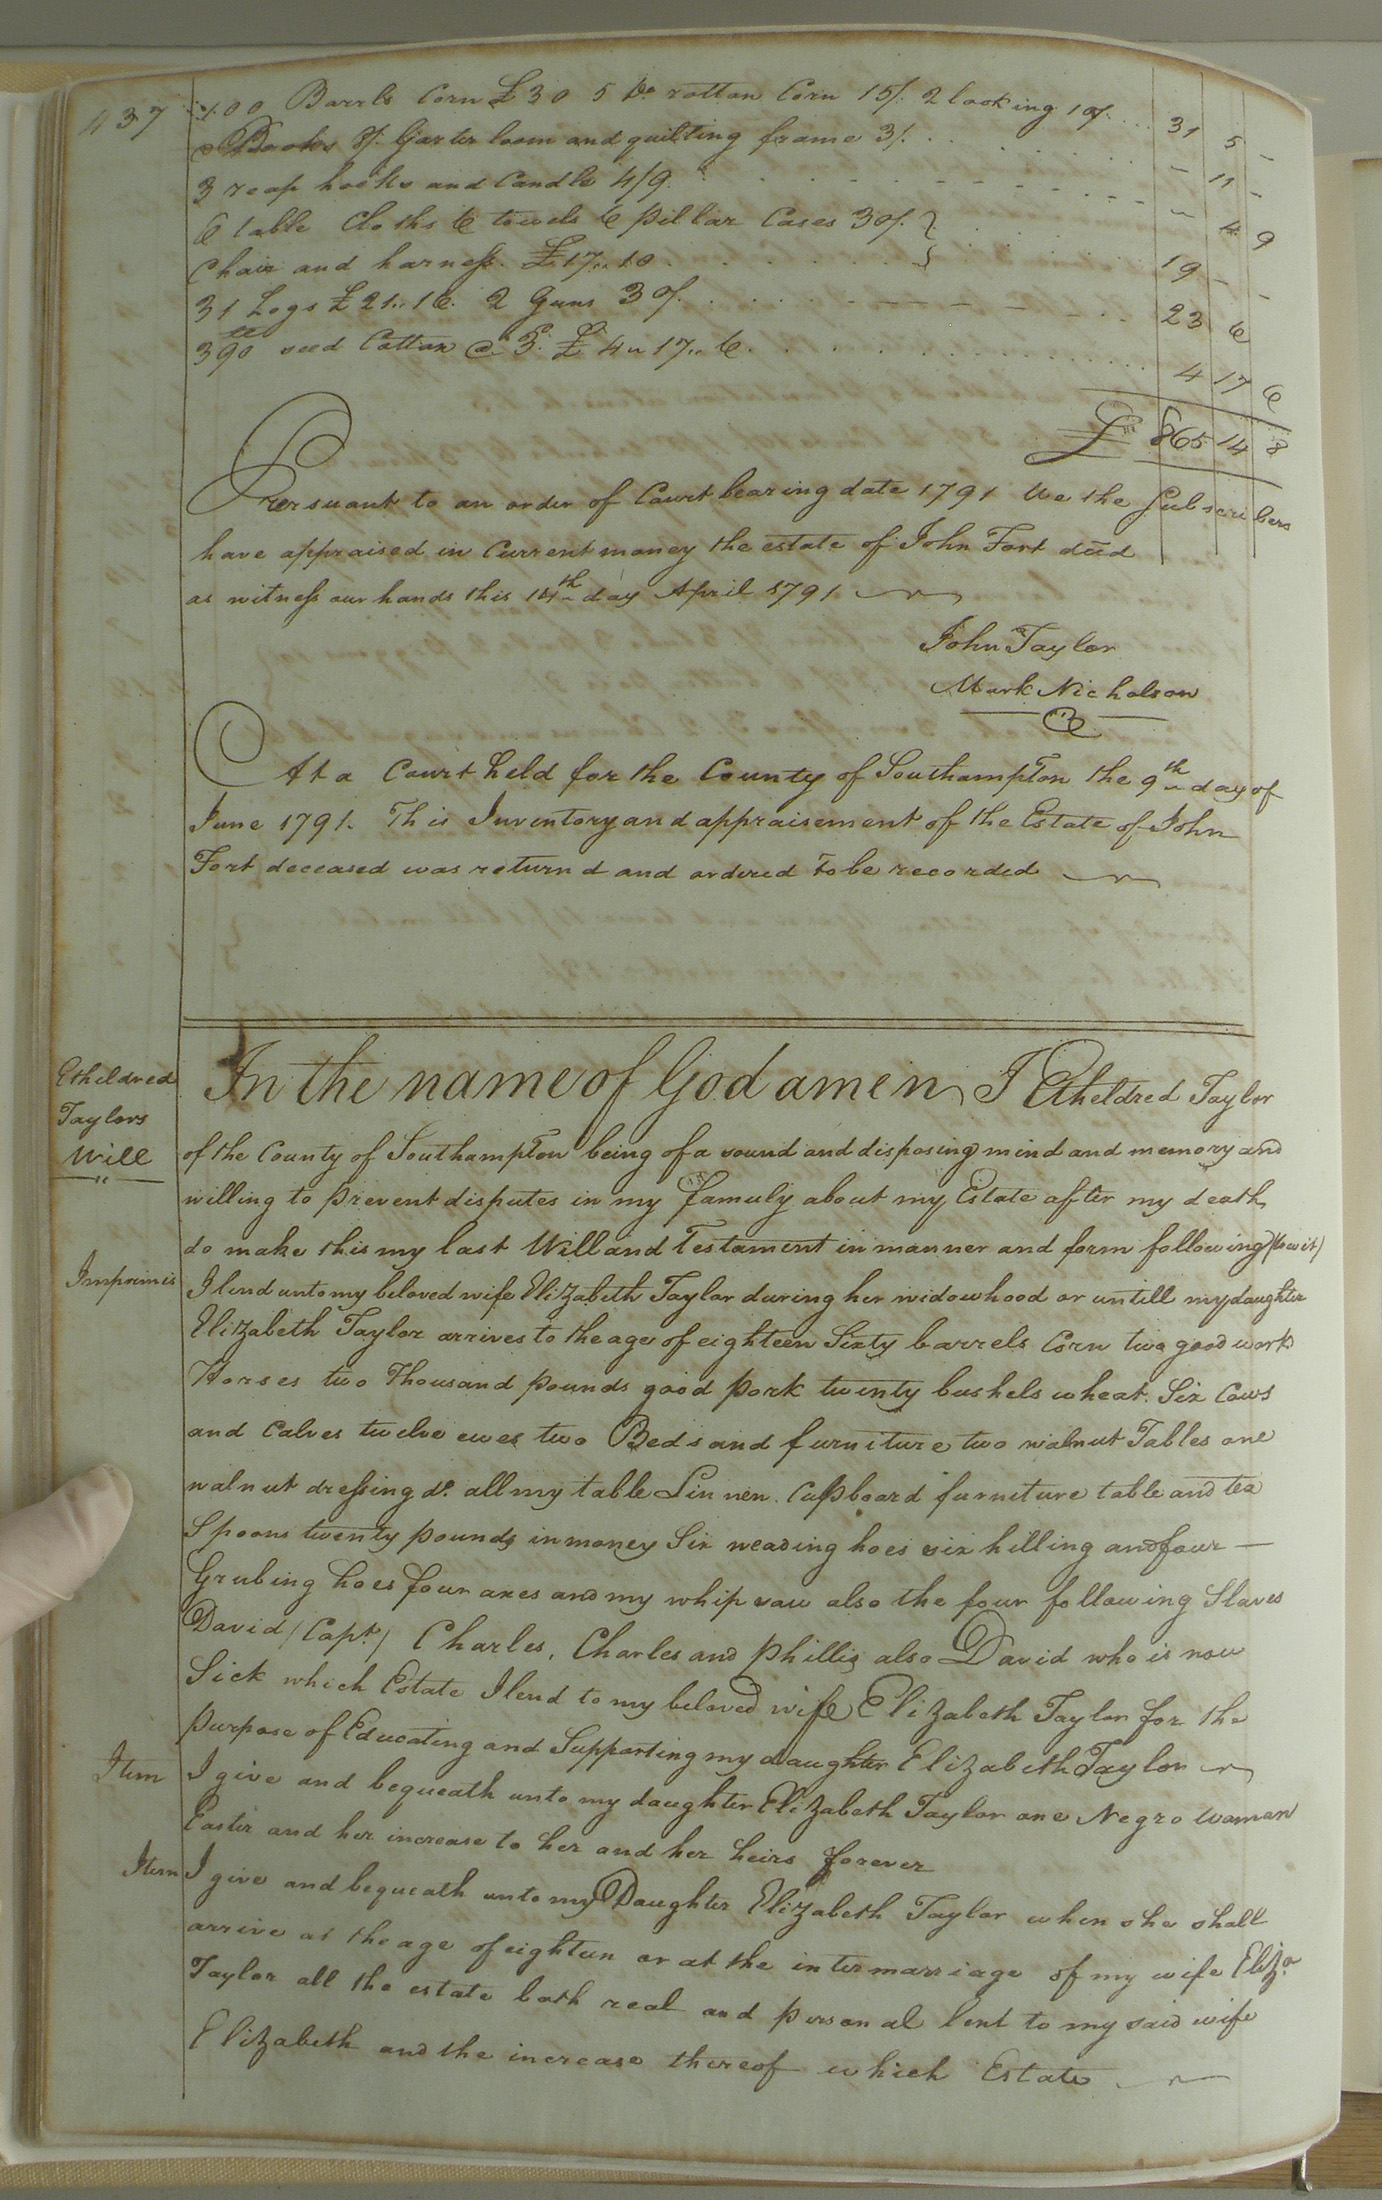 437
100 Barrls Corn £30 5 Do rotton Corn 15/. 2 looking 10/. .... 31 5 –
Books 8/. Garter loom and quilting frame 3/. . . . . . . – 11 –
3 reap hooks and Candle 4/9. . . . . . . – 4 9
6 table Cloths 6 towels 6 pillar Cases 30/. }
Chair and harness. £17..10 . . . . . . . } 19 – –
31 Logs £21..16. 2 Guns 30/. . . . . . . 23 6
390 lb seed Cotton @ 3d. £4..17..6. . . . . . . 4 17 6
£ 865 14 8
Persuant to an order of Court bearing date 1791 We the Subscribers
have appraised in Current money the estate of John Fort decd
as witness our hands this 14th day April 1791
John Taylor
Mark Nicholson
At a Court held for the County of Southampton the 9th day of
June 1791. This Inventory and appraisement of the Estate of John
Fort deceased was returnd and ordered to be recorded
Etheldred
Taylors
Will
In the name of God amen I Etheldred Taylor
of the County of Southampton being of a sound and disposing mind and memory and
willing to prevent disputes in my famuly about my Estate after my death
do make this my last Will and Testament in manner and form following (towit)
Imprimis I lend unto my beloved wife Elizabeth Taylor during her widowhood or untill my daughter
Elizabeth Taylor arrives to the age of eighteen Sixty barrels Corn two good work
Horses two Thousand pounds good pork twenty bushels wheat. Six Cows
and Calves twelve ewes two Beds and furniture two walnut Tables one
walnut dressing do. all my table Linnen. Cupboard furniture table and tea
Spoons twenty pounds in money Six weading hoes six hilling and four —
Grubing hoes four axes and my whip saw also the four following Slaves
David (Capt.) Charles, Charles and Phillis also David who is now
Sick which Estate I lend to my beloved wife Elizabeth Taylor for the
purpose of Educating and Supporting my daughter Elizabeth Taylor
Item I give and bequeath unto my daughter Elizabeth Taylor one Negro woman
Easter and her increase to her and her heirs forever
Item I give and bequeath unto my Daughter Elizabeth Taylor when she shall
arrive at the age of eighteen or at the intermarriage of my wife Eliza
Taylor all the estate both real and personal lent to my said wife
Elizabeth and the increase thereof which Estate